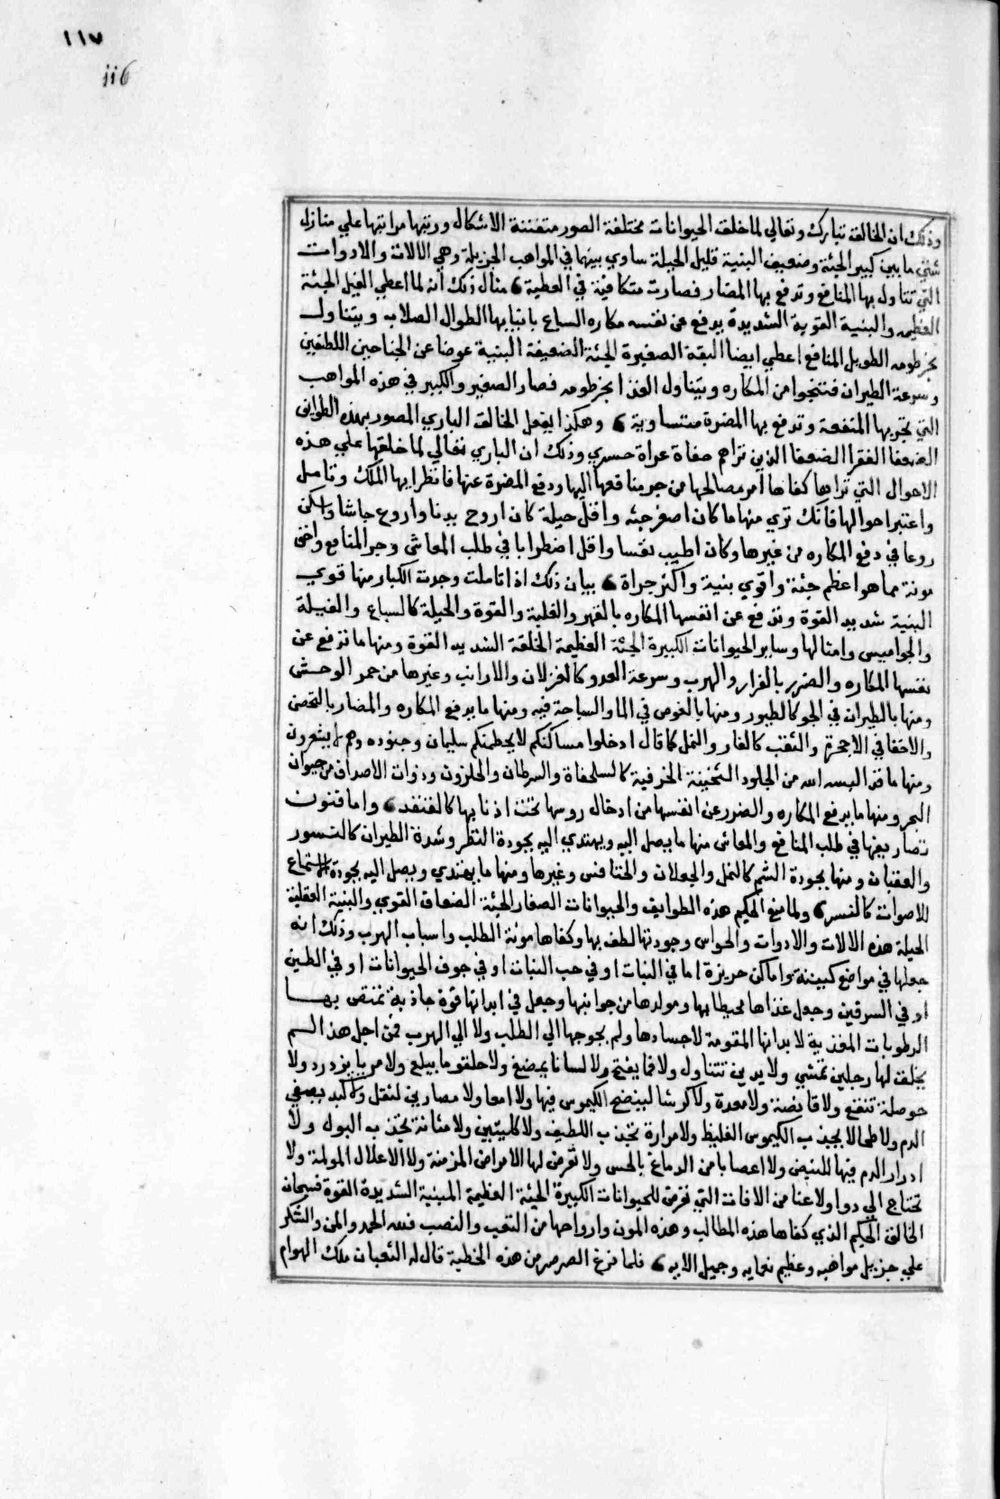 ١١٧
116
وذلك ان الخالق تبارك وتعالي لما خلق الحيوانات مختلفة الصور متفننة الاشكال ورتبها مراتبها علي منازل
شتي ما بين كبير الجثة وضعيف البنية قليل الحيلة ساوي بينها في المواهب الجزيلة وهي الالات والادوات
التي تتناول بها المنافع وتدفع بها المضار فصارت متكافية في العطية مثال ذلك انه لما اعطي الفيل الجثة
العظيمه والبنية القوية الشديدة يدفع عن نفسه مكاره السباع بانيابها الطوال الصلاب ويتناول
بخرطومه الطويل المنافع اعطي ايضا البقة الصغيرة الجثة الضعيفة البنية عوضا عن الجناحين اللطفين
وسرعة الطيران فتنجوا من المكاره ويتناول الغذا بخرطومه فصار الصغير والكبير في هذه المواهب
التي تجر بها المنفعة وتدفع بها المضرة متساوية وهكذا يفعل الخالق الباري المصور بهذه الطوايف
الضعفا الفقرا الضعفا الذين تراهم حفاة عراة حسري وذلك ان الباري تعالي لما خلقها علي هذه
الاحوال التي تراها كفاها امر مصالحها من جر منافعها اليها ودفع المضرة عنها فانظر ايها الملك وتامل
واعتبر احوالها فانك تري منها ما كان اصغر جثه واقل حيلة كان اروح بدنا واروع جاشا واسكن
روعا في دفع المكاره من غيرها وكان اطيب نفسا واقل اضطرابا في طلب المعاش وجر المنافع واخف
مونة مما هو اعظم جثة واقوي بنية واكثر جراة بيان ذلك اذا تاملت وجدت الكبار منها قوي
البنية شديد القوة وتدفع عن انفسها المكاره بالقهر والغلبة والقوة والحيلة كالسباع والفيلة
والجواميس وامثالها وساير الحيوانات الكبيرة الجثة العظيمة الخلقة الشديد القوة ومنها ما تدفع عن
نفسها المكاره والضرر بالفرار والهرب وسرعة العدو كالغزلان والارانب وغيرها من حمر الوحش
ومنها بالطيران في الجو كالطيور ومنها بالغوص في الما والسباحة فيه ومنها ما يدفع المكاره والمضار بالتحصن
والاختفا في الاجحرة والثقب كالفار والنمل كما قال ادخلوا مساكنكم لا يحطمنكم سليمان وجنوده وهم لا يشعرون
ومنها ما قد البسه الله من الجلود الثخينة الخزفية كالسلحفاة والسرطان والحلزون وذوات الاصداف من حيوان
البحر ومنها ما يدفع المكاره والضرر عن انفسها من ادخال روسها تحت اذنابها كالقنفد واما فنون
تصاريفها في طلب المنافع والمعاش منها ما يصل اليه ويهتدي اليه بجودة النظر وشدة الطيران كالنسور
والعقبان ومنها بجودة الشم كالنمل والجعلان والخنافس وغيرها ومنها ما يهتدي ويصل اليه بجودة استماع
للاصوات كالنسر ولما منع الحكيم هذه الطوايف والحيوانات الصغار الجثة الضعاف القوي والبنية القليلة
الحيلة هذه الالات والادوات والحواس وجودتها لطف بها وكفاها مونة الطلب واسباب الهرب وذلك انه
جعلها في مواضع كنينة واماكن حريزة اما في النبات او في حب النبات او في جوف الحيوانات او في الطين
او في السرقين وجعل غذاها محيطا بها ومولدها من جوانبها وجعل في ابدانها قوة جاذبة تمتص بها
الرطوبات المغذية لابدانها المقومة لاجسادها ولم يحوجها الي الطلب ولا الي الهرب فمن اجل هذا لم
يخلق لها رجلين تمشي ولا يدين تتناول ولا فما يفتح ولا لسانا يمضغ ولا حلقوما يبلع ولا مريا يزدرد ولا
حوصلة تنقع ولا قانصة ولا معدة ولا كرشا لينضج الكيموس فيها ولا امعا ولا مصارين لثقل ولا كبد يصفي
الدم ولا طحالا يجذب الكيموس الغليظ ولا مرارة تجذب اللطيف ولا كليتين ولا مثانة تجذب البول ولا
ادرار الدم فيها للنبض ولا اعصابا من الدماغ بالحس ولا تعرض لها الامراض المزمنة ولا الاعلال المولمة ولا
تحتاج الي دوا ولا عنا من الافات التي تعرض للحيوانات الكبيرة الجثة العظيمة المبنية الشديدة القوة فسبحان
الخالق الحكيم الذي كفاها هذه المطالب وهذه المون وارواحها من التعب والنصب فلله الحمد والمن والشكر
علي جزيل مواهبه وعظيم نعمايه وجميل الايه فلما فرغ الصرصر من هذه الخطبة قال له الثعبان ملك الهوام